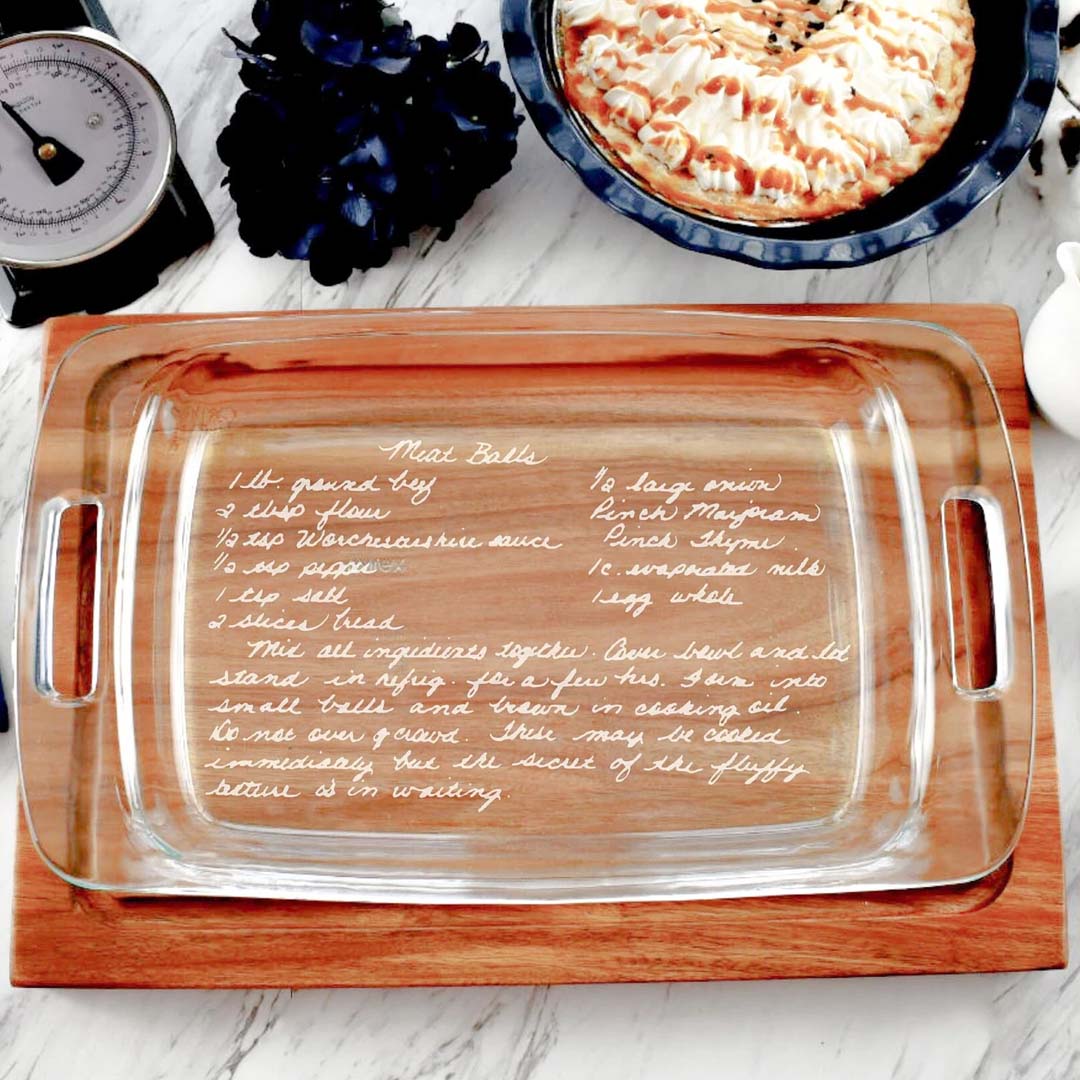 Meat Balls
1 lb. ground beef
2 tbsp flour
1/2 tsp Worchestershire sauce
1/2 tsp pepper
1 tsp salt
2 slices bread
1/2 large onion
Pinch Marjoram
Pinch Thyme
1 c. evaporated milk
1 egg whole
Mix all ingredients together. Cover bowl and let
stand in refrig. for a few hrs. Form into
small balls and brown in cooking oil.
Do not over crowd. These may be cooked
immediately but the secret of the fluffy
texture is in waiting.